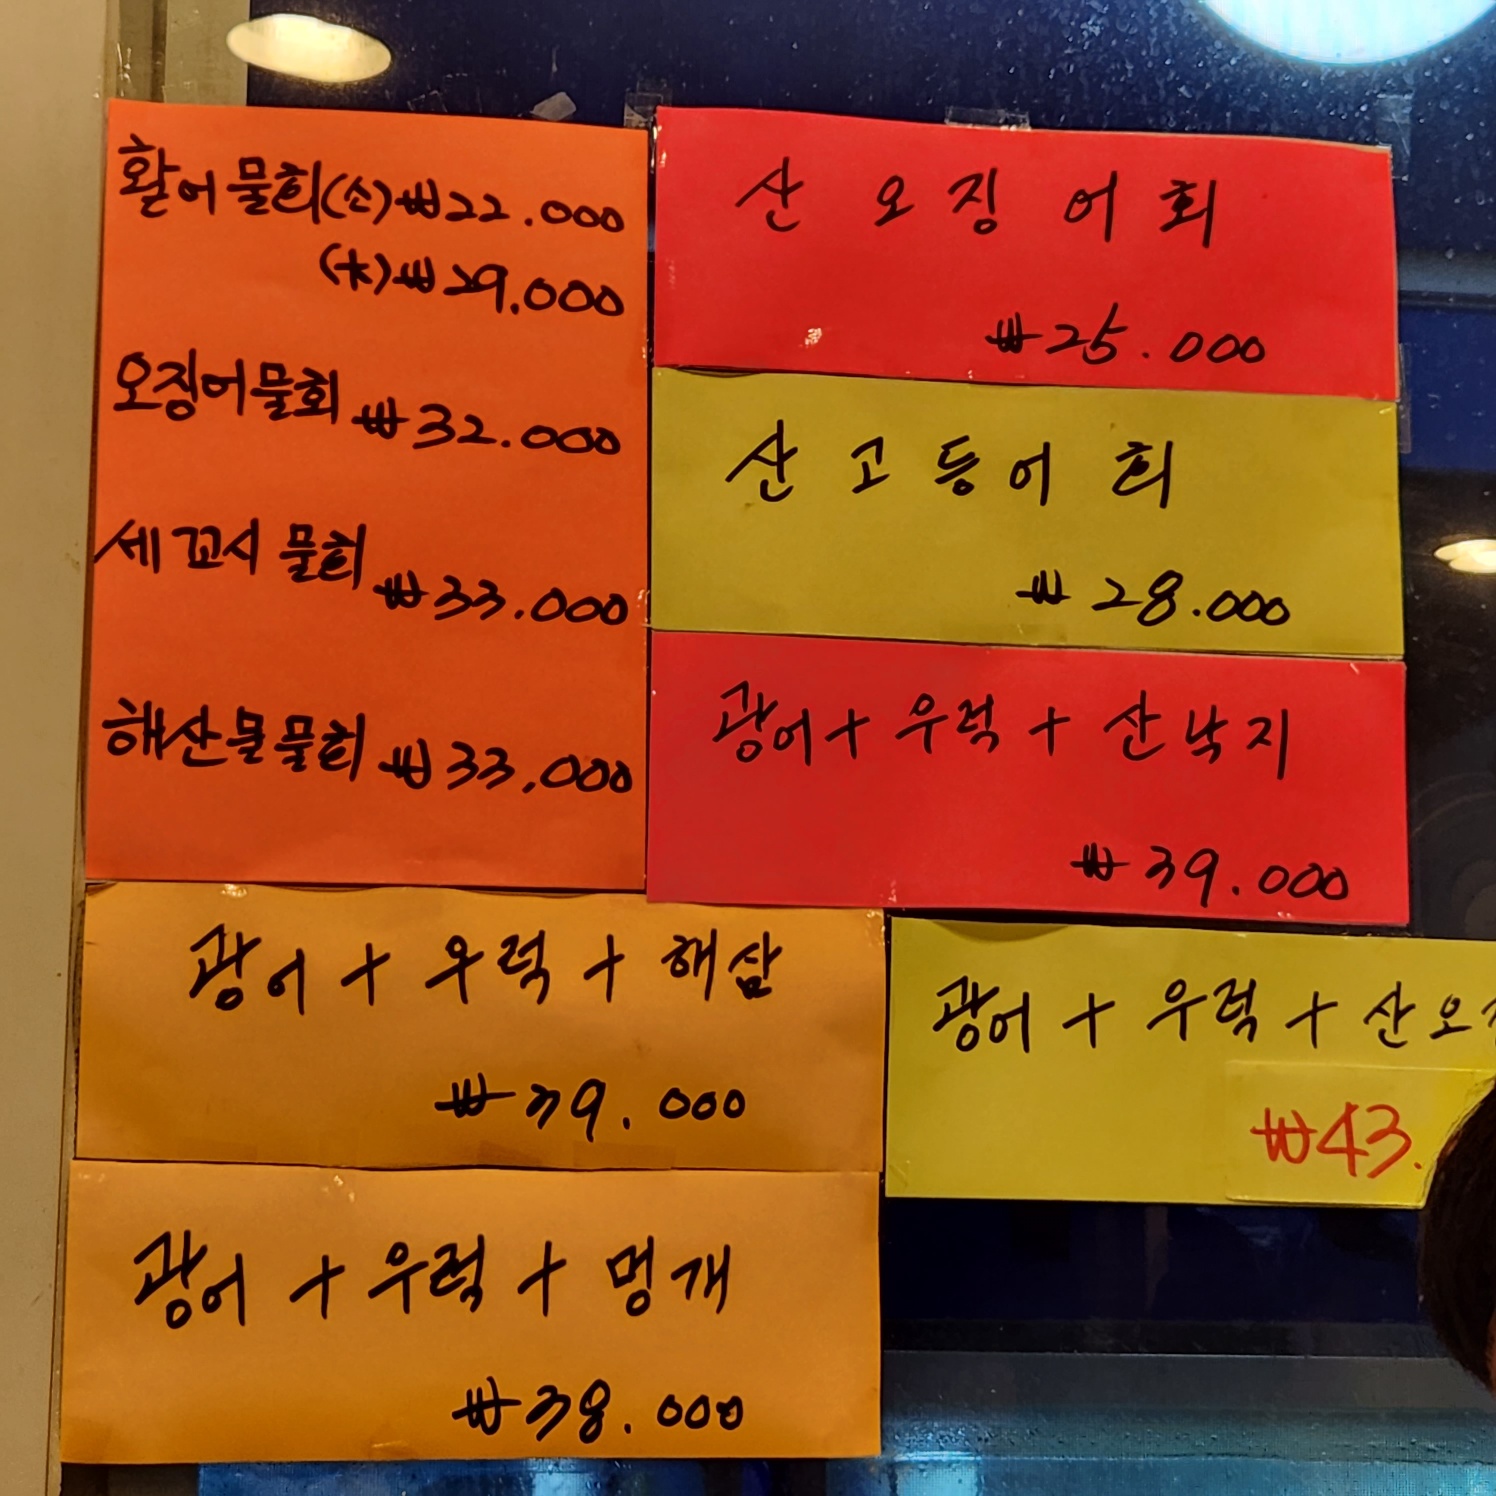 활어물회(소)₩22.000
(大)₩29.000
오징어물회 ₩32.000
세꼬시 물회 ₩33.000
해산물물회 ₩33,000
산 오징어회
₩25.000
산고등어회
₩28.000
광어+우럭+산낙지
₩39.000
광어+우럭+해삼
₩39.000
광어+우럭+산오
₩43.
광어+우럭+멍개
₩38.000